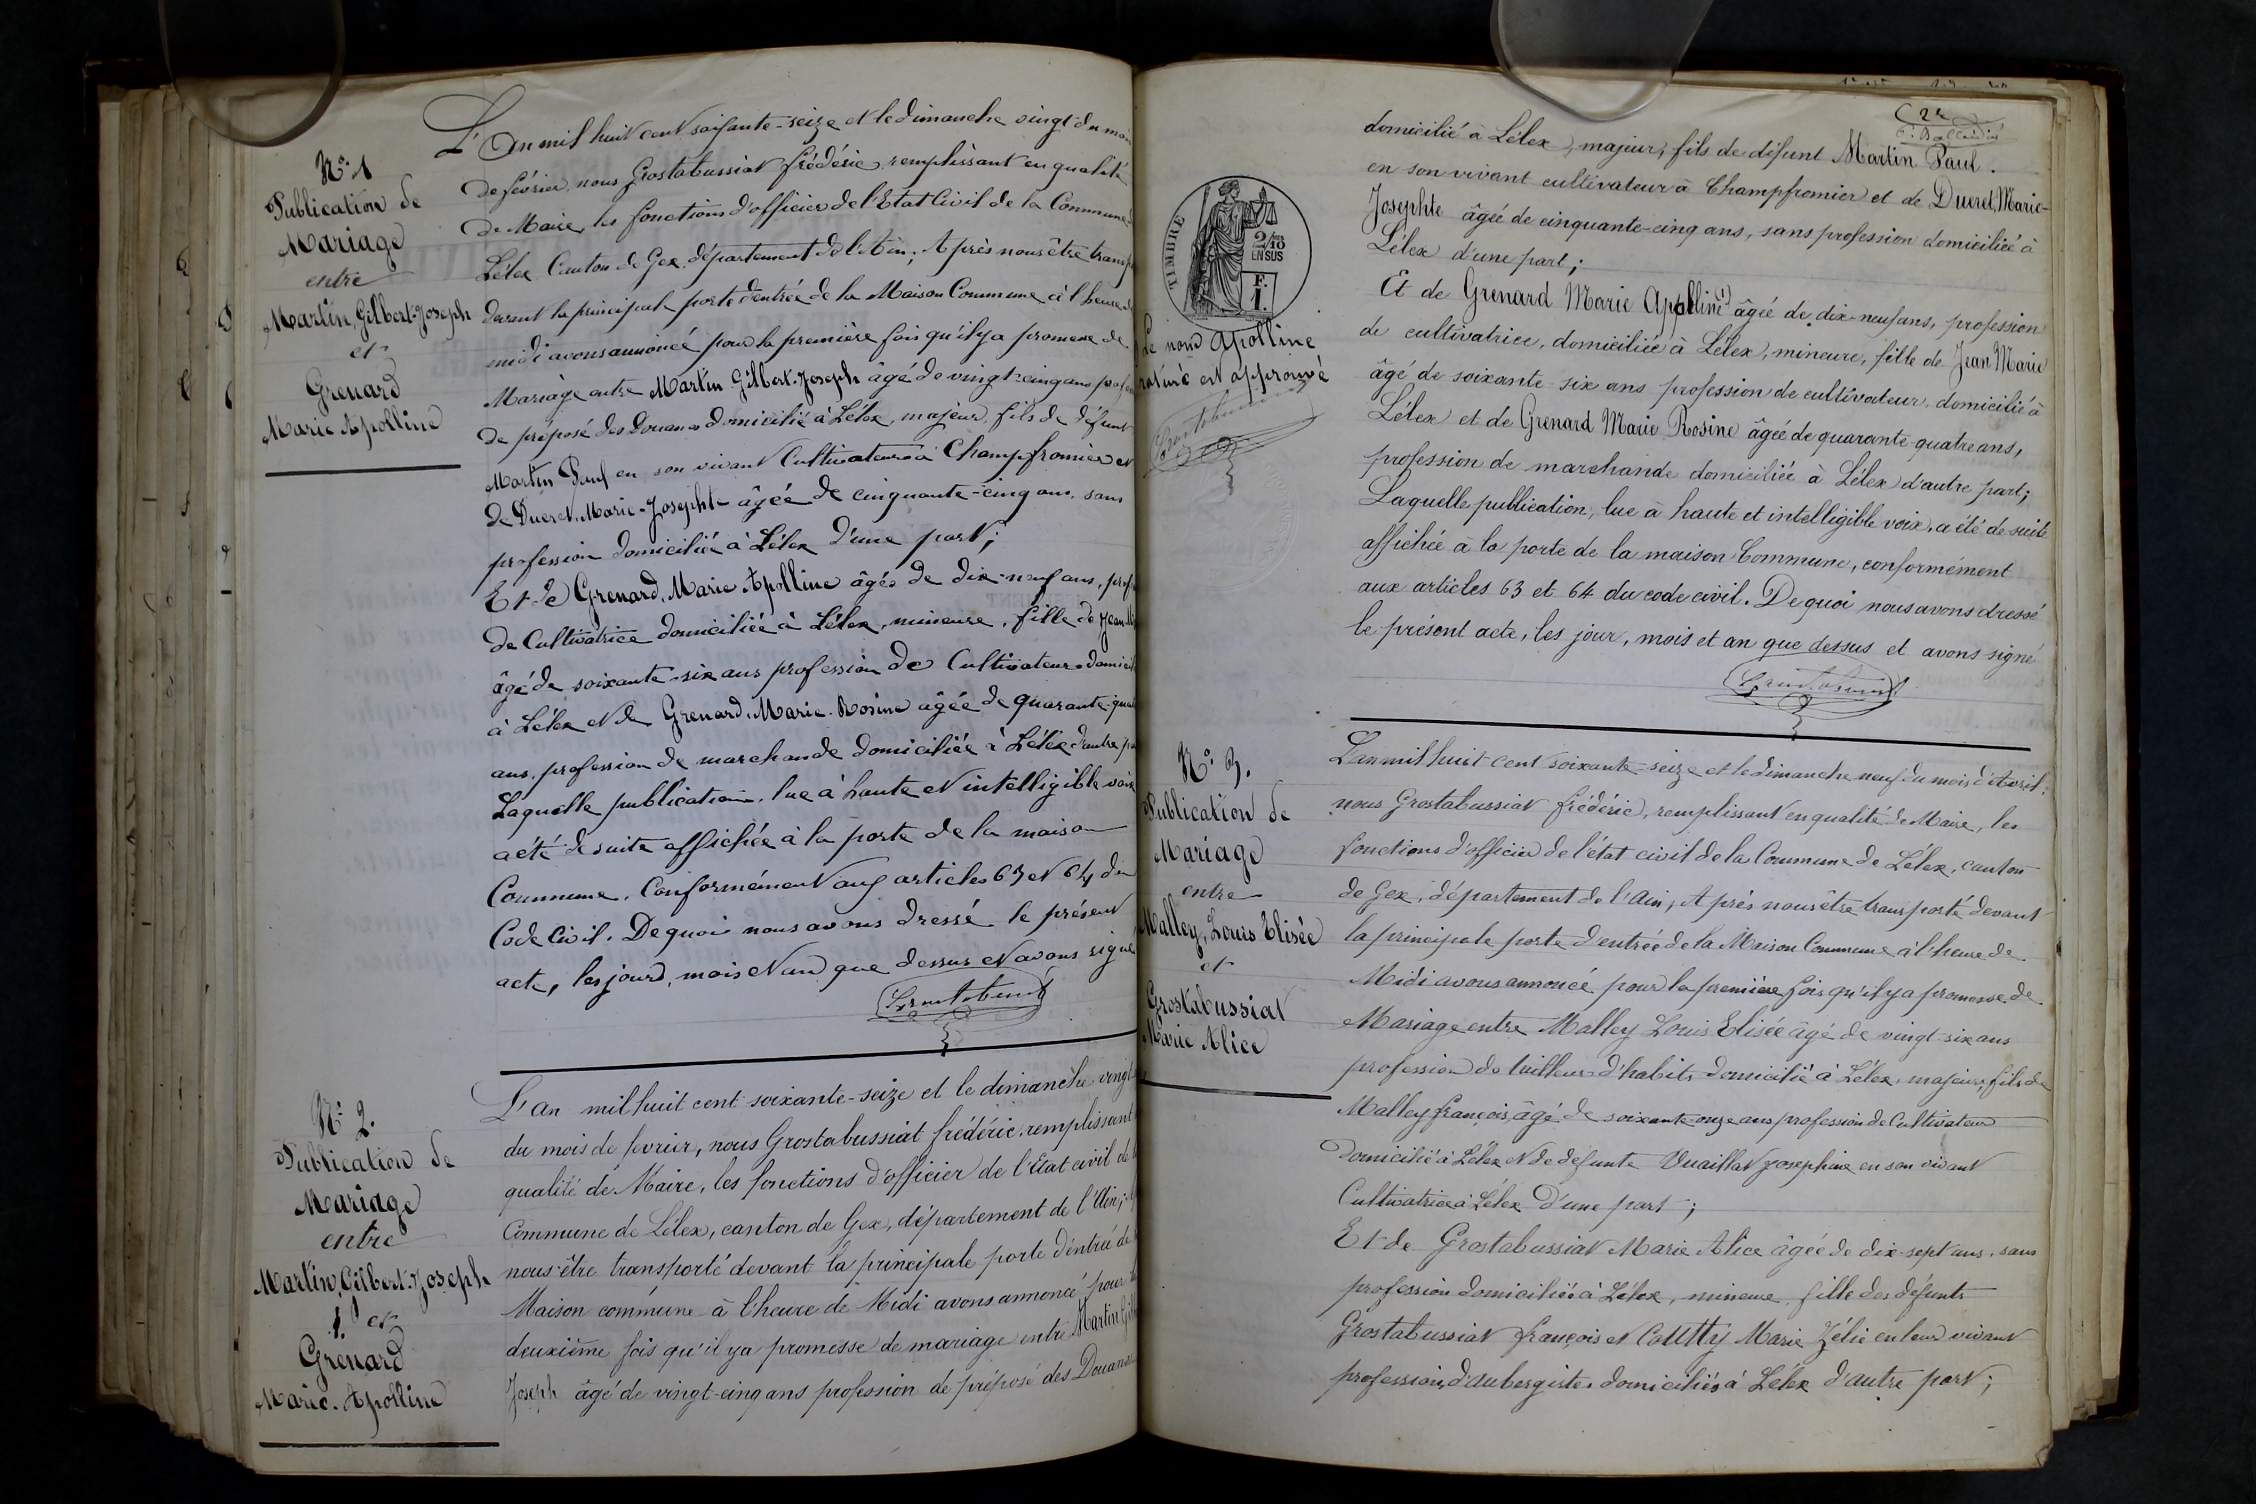 N° 1
Publication de
Mariage
entre
Martin, Gilbert-Joseph
et
Grenard
Marie Apolline
L'an mil huit cent soixante-seize et le dimanche vingt du mois
de février, nous Grostabussiat frédéric, remplissant en qualité
de Maire, les fonctions d'officier de l'Etat Civil de la Commune
Lélex Canton de Gex, département de l'Ain; Après nous être
devant la principale porte d'entrée de la Maison Commune à l'heure
midi avons annoncé pour la première fois qu'il y a promesse de
Mariage entre Martin Gilbert-Joseph âgé de vingt-cinq ans
de préposé des Douanes domicilié à Lélex, majeur, fils de défunt
Martin Paul en son vivant Cultivateur à Champfromier et
de Ducret, Marie-Josephte âgée de cinquante-cinq ans, sans
profession domiciliée à Lélex d'une part;
Et de Grenard, Marie Apolline âgée de dix-neuf ans,
de Cultivatrice domiciliée à Lélex, mineure, fille de Jean
âgé de soixante-six ans profession de Cultivateur
à Lélex et de Grenard, Marie-Rosine âgée de quarante
ans, profession de marchande domiciliée à Lélex d'autre
Laquelle publication, lue à haute et intelligible voix
a été de suite affichée à la porte de la maison
Commune, Conformément aux articles 63 et 64 du
Code Civil. De quoi nous avons dressé le présent
acte, les jour, mois et an que dessus et avons signé
N° 2.
Publication de
Mariage
entre
Martin, Gilbert-Joseph
1. et
Grenard
Marie-Apolline
L'an mil huit cent soixante-seize et le dimanche
du mois de fevrier, nous Grostabussiat frédéric, remplissant
qualité de Maire, les fonctions d'officier de l'Etat civil de
Commune de Lélex, canton de Gex, département de l'Ain;
nous être transporté devant la principale porte d'entrée de
Maison commune à l'heure de Midi avons annoncé pour
deuxième fois qu'il y a promesse de mariage entre Martin
Joseph âgé de vingt-cinq ans profession de préposé des Douanes
22
domicilié à Lélex, majeur, fils de défunt Martin Paul.
en son vivant cultivateur à Champfromier et de Ducret, Marie-
Josephte âgée de cinquante-cinq ans, sans profession domiciliée à
Lélex d'une part;
TIMBRE
2/10
EN SUS
F.
1.
Le nom Apolline
raturé est approuvé
Et de Grenard Marie Apolline âgée de dix-neuf ans, profession
de cultivatrice, domiciliée à Lélex, mineure, fille de Jean Marie
âgé de soixante-six ans profession de cultivateur, domicilié à
Lélex et de Grenard Marie Rosine âgée de quarante-quatre ans,
profession de marchande domiciliée à Lélex d'autre part;
Laquelle publication, lue à haute et intelligible voix, a été de suite
affichée à la porte de la maison Commune, conformément
aux articles 63 et 64 du code civil. De quoi nous avons dressé
le présent acte, les jour, mois et an que dessus et avons signé
N° 3.
Publication de
Mariage
entre
Malley, Louis Elisée
et
Grostabussiat
Marie Alice
L'an mil huit cent soixante-seize et le dimanche neuf du mois d'Avril;
nous Grostabussiat frédéric, remplissant en qualité de Maire, les
fonctions d'officier de l'état civil de la Commune de Lélex, canton
de Gex, département de l'Ain, Après nous être transporté devant
la principale porte d'entrée de la Maison Commune à l'heure de
Midi avons annoncé pour la première fois qu'il y a promesse de
Mariage entre Malley Louis Elisée âgé de vingt-six ans
profession de tailleur d'habits domicilié à Lélex, majeur, fils de
Malley françois, âgé de soixante-onze ans profession de Cultivateur
domicilié à Lélex et de defunte Vuaillat Josephine en son vivant
Cultivatrice à Lélex d'une part;
Et de Grostabussiat Marie Alice âgée de dix-sept ans, sans
profession domiciliée à Lélex, mineure, fille des défunts
Grostabussiat françois et Coutty Marie Zélie en leur vivant
profession d'aubergiste, domiciliés à Lélex d'autre part;